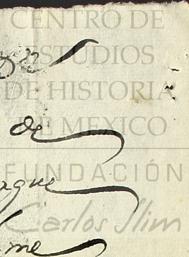 CENTRO DE
ESTUDIOS
DE HISTORIA
DE MEXICO
de
FUNDACIÓN
Carlos Slim
me